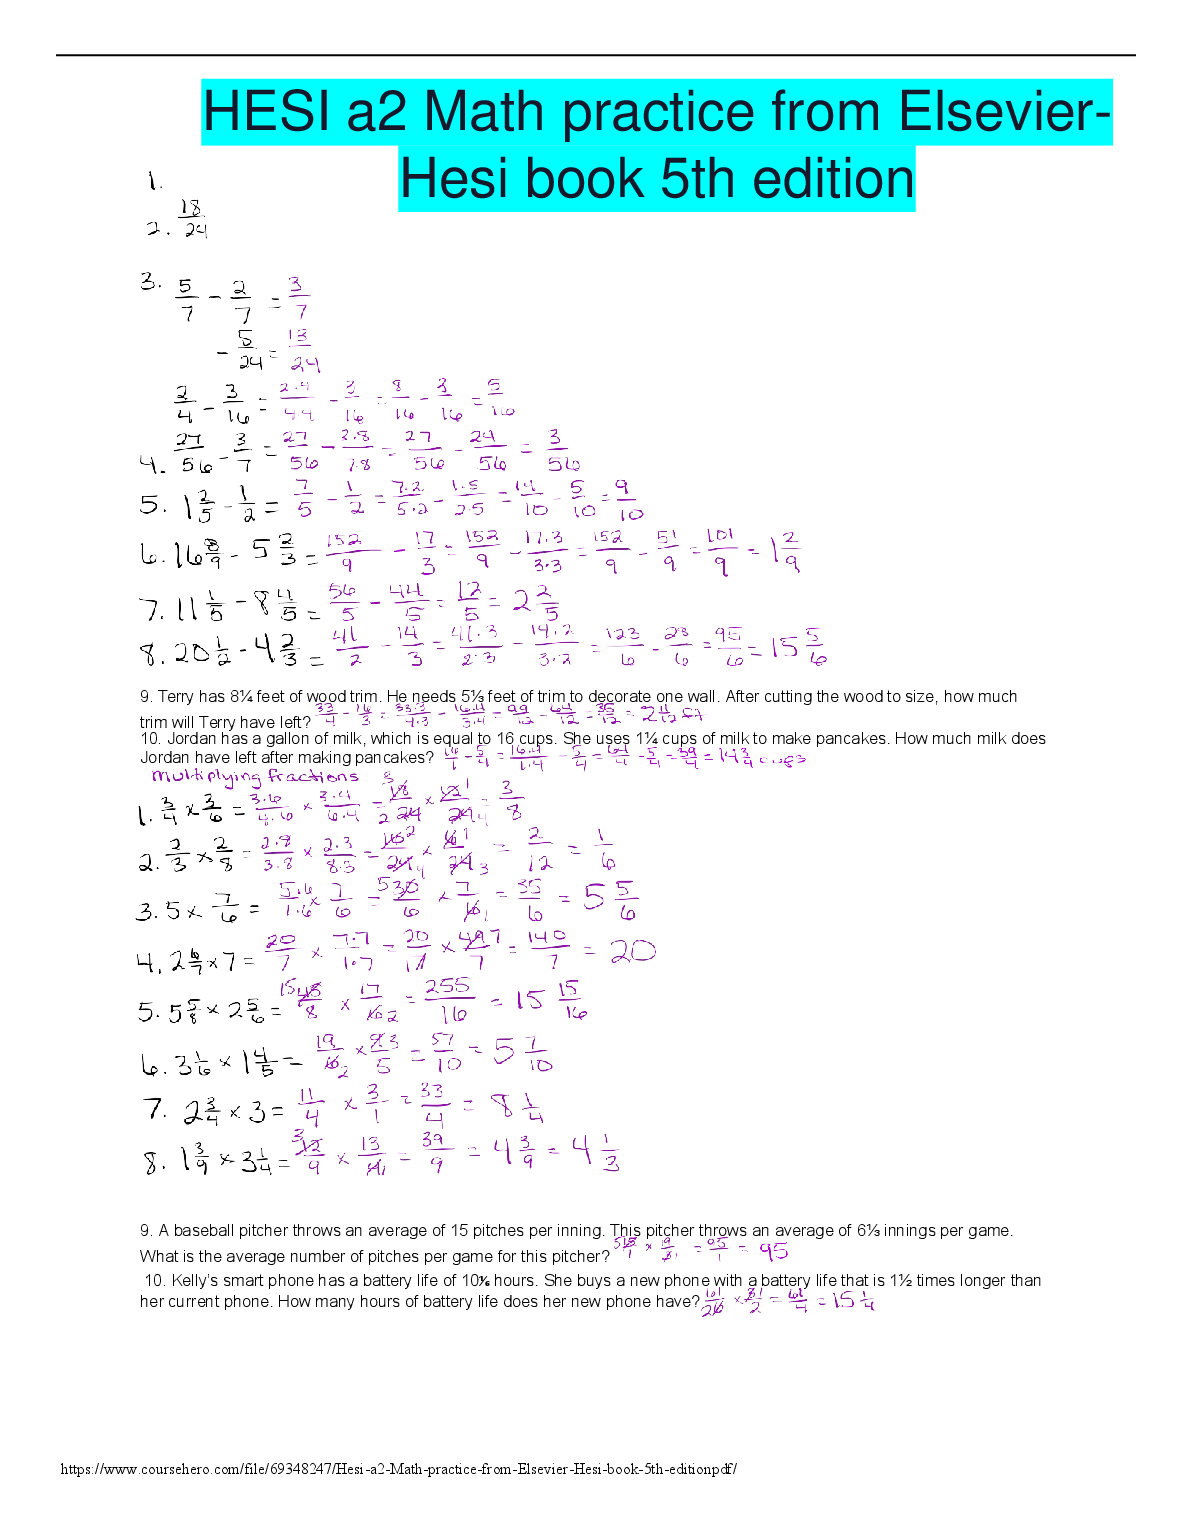 HESI a2 Math practice from Elsevier-
Hesi book 5th edition
1.
18/24
2.
3. 5/7 - 2/7 = 3/7
- 5/24 = 13/24
2/4 - 3/16 = 2·4/4·4 - 3/16 = 8/16 - 3/16 = 5/16
4. 27/56 - 3/7 = 27/56 - 3·8/7·8 = 27/56 - 24/56 = 3/56
5. 1 2/5 - 1/2 = 7/5 - 1/2 = 7·2/5·2 - 1·5/2·5 = 14/10 - 5/10 = 9/10
6. 16 8/9 - 5 2/3 = 152/9 - 17/3 = 152/9 - 17·3/3·3 = 152/9 - 51/9 = 101/9 = 1 2/9
7. 11 1/5 - 8 4/5 = 56/5 - 44/5 = 12/5 = 2 2/5
8. 20 1/2 - 4 2/3 = 41/2 - 14/3 = 41·3/2·3 - 14·2/3·2 = 123/6 - 28/6 = 95/6 = 15 5/6
9. Terry has 8¼ feet of wood trim. He needs 5⅓ feet of trim to decorate one wall. After cutting the wood to size, how much
trim will Terry have left? 33/4 - 16/3 = 33·3/4·3 - 16·4/3·4 = 99/12 - 64/12 = 35/12 = 2 11/12 ft
10. Jordan has a gallon of milk, which is equal to 16 cups. She uses 1¼ cups of milk to make pancakes. How much milk does
Jordan have left after making pancakes? 16/1 - 5/4 = 16·4/1·4 - 5/4 = 64/4 - 5/4 = 59/4 = 14 3/4 cups
multiplying fractions
1. 3/4 × 3/6 = 3·6/4·6 × 3·4/6·4 = 18/24 × 12/24 = 3/8
2. 2/3 × 2/8 = 2·8/3·8 × 2·3/8·3 = 16/24 × 6/24 = 2/12 = 1/6
3. 5 × 7/6 = 5·6/1·6 × 7/6 = 30/6 × 7/6 = 35/6 = 5 5/6
4. 2 6/7 × 7 = 20/7 × 7·7/1·7 = 20/7 × 49/7 = 140/7 = 20
5. 5 5/8 × 2 5/6 = 45/8 × 17/6 = 255/16 = 15 15/16
6. 3 1/6 × 1 4/5 = 19/6 × 9/5 = 57/10 = 5 7/10
7. 2 3/4 × 3 = 11/4 × 3/1 = 33/4 = 8 1/4
8. 1 3/9 × 3 1/4 = 12/9 × 13/4 = 39/9 = 4 3/9 = 4 1/3
9. A baseball pitcher throws an average of 15 pitches per inning. This pitcher throws an average of 6⅓ innings per game.
What is the average number of pitches per game for this pitcher? 15/1 × 19/3 = 95/1 = 95
10. Kelly's smart phone has a battery life of 10⅙ hours. She buys a new phone with a battery life that is 1½ times longer than
her current phone. How many hours of battery life does her new phone have? 61/6 × 3/2 = 61/4 = 15 1/4
https://www.coursehero.com/file/69348247/Hesi-a2-Math-practice-from-Elsevier-Hesi-book-5th-editionpdf/